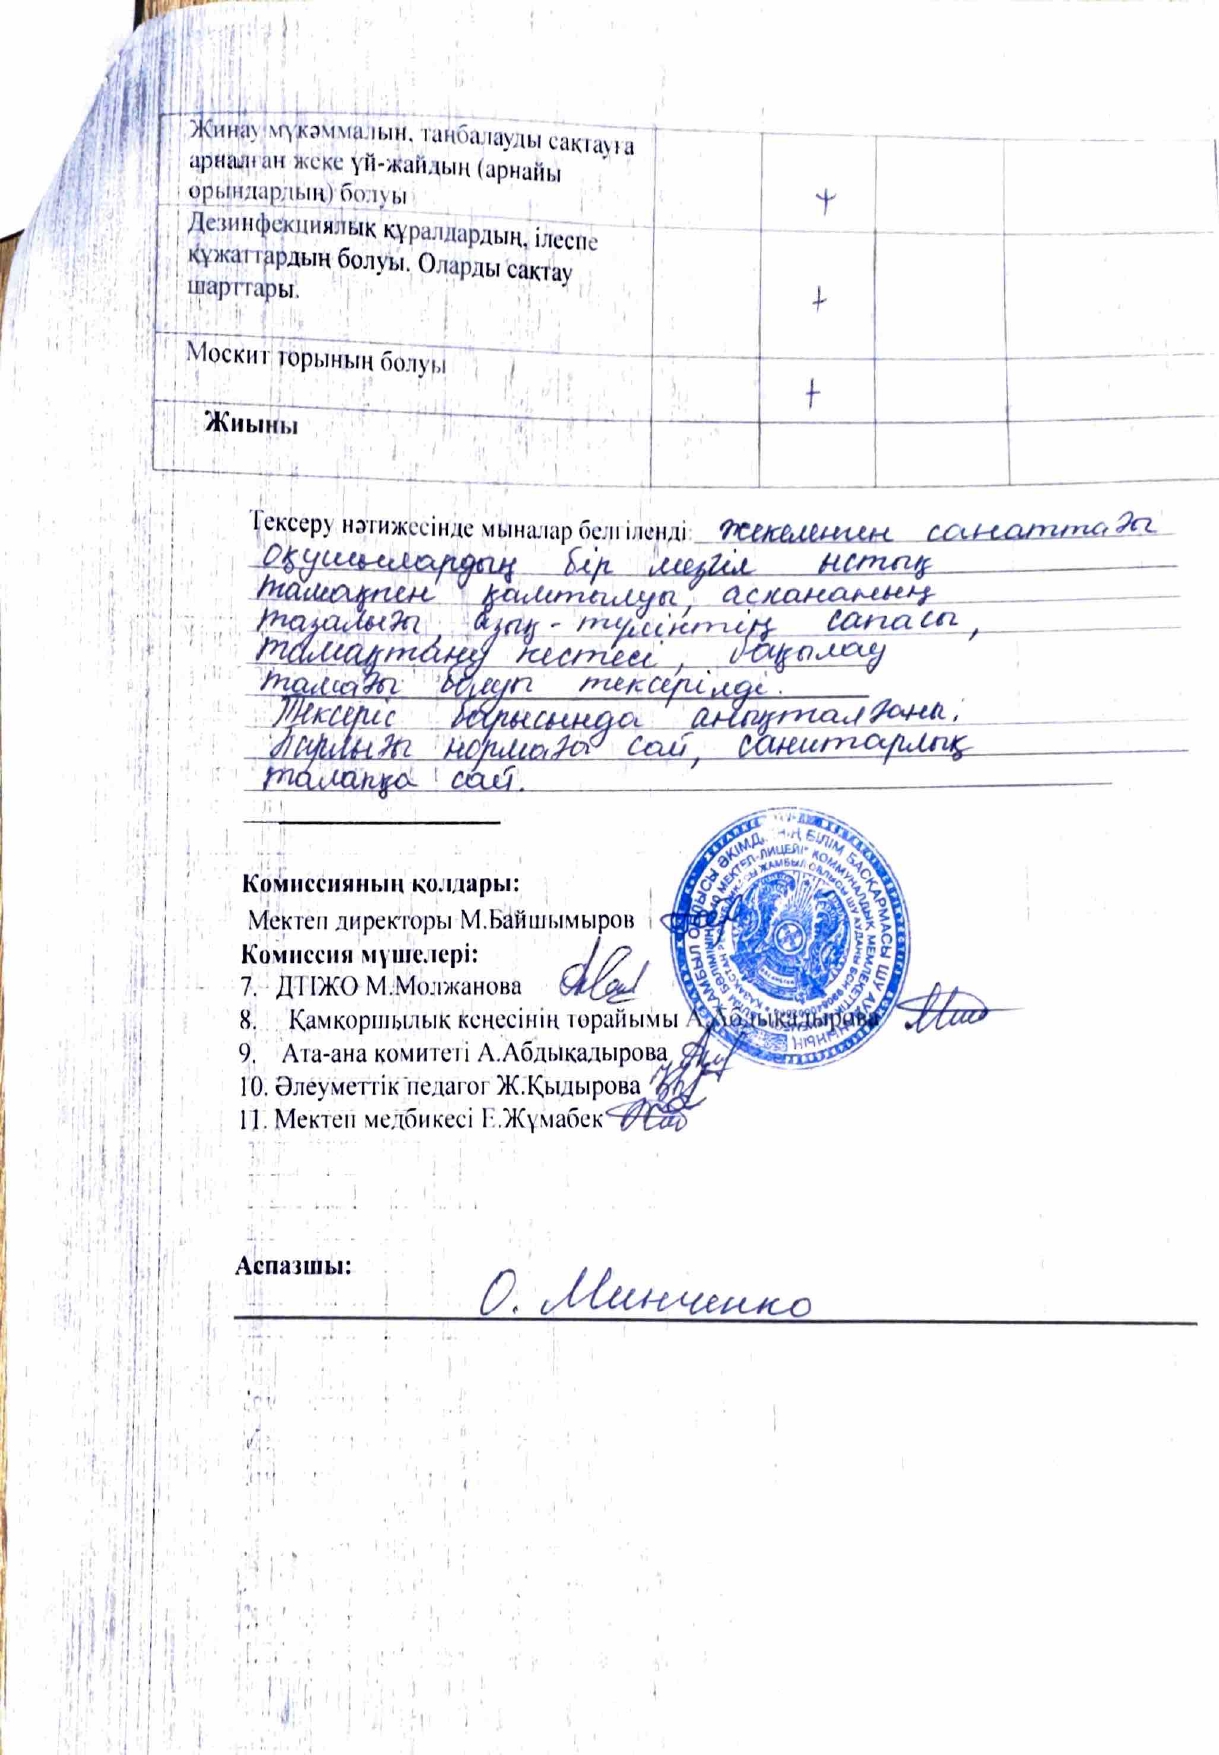 Жинау мүкәммалын, таңбалауды сақтауға
арналған жеке үй-жайдың (арнайы
орындардың) болуы +
Дезинфекциялық құралдардың, ілеспе
құжаттардың болуы. Оларды сақтау
шарттары. +
Москит торының болуы +
Жиыны
Тексеру нәтижесінде мыналар белгіленді: жекеленген санаттағы
оқушылардың бір мезгіл ыстық
тамақпен қамтылуы, асхананың
тазалығы, азық-түліктің сапасы,
тамақтану кестесі, бақылау
тамағы болуы тексерілді.
Тексеріс барысында анықталғаны:
барлығы нормаға сай, санитарлық
талапқа сай.
Комиссияның қолдары:
Мектеп директоры М.Байшымыров
Комиссия мүшелері:
7. ДТІЖО М.Молжанова
8. Қамқоршылық кеңесінің төрайымы А.Абдықадырова
9. Ата-ана комитеті А.Абдықадырова
10. Әлеуметтік педагог Ж.Қыдырова
11. Мектеп медбикесі Е.Жұмабек
Аспазшы:
О. Минченко